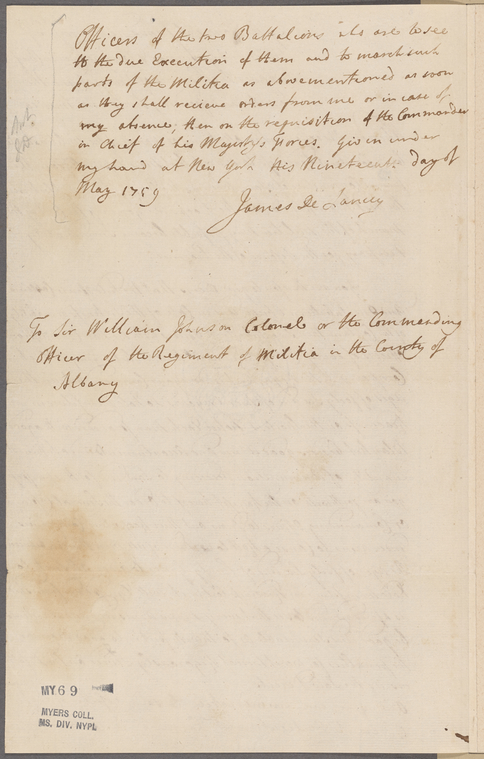 Officers of the two Battalions als are to see
to the due Execution of them and to march such
parts of the Militia as abovementioned as soon
as they shall recieve orders from me or in case of
my absence, then on the requisition of the Commander
in Chief of his Majestys Forces. Given under
my hand at New York this Nineteenth day of
May 1759
James De Lancey
To Sir William Johnson Colonel or the Commanding
Officer of the Regiment of Militia in the County of
Albany
MY69
MYERS COLL.
MS. DIV. NYPL